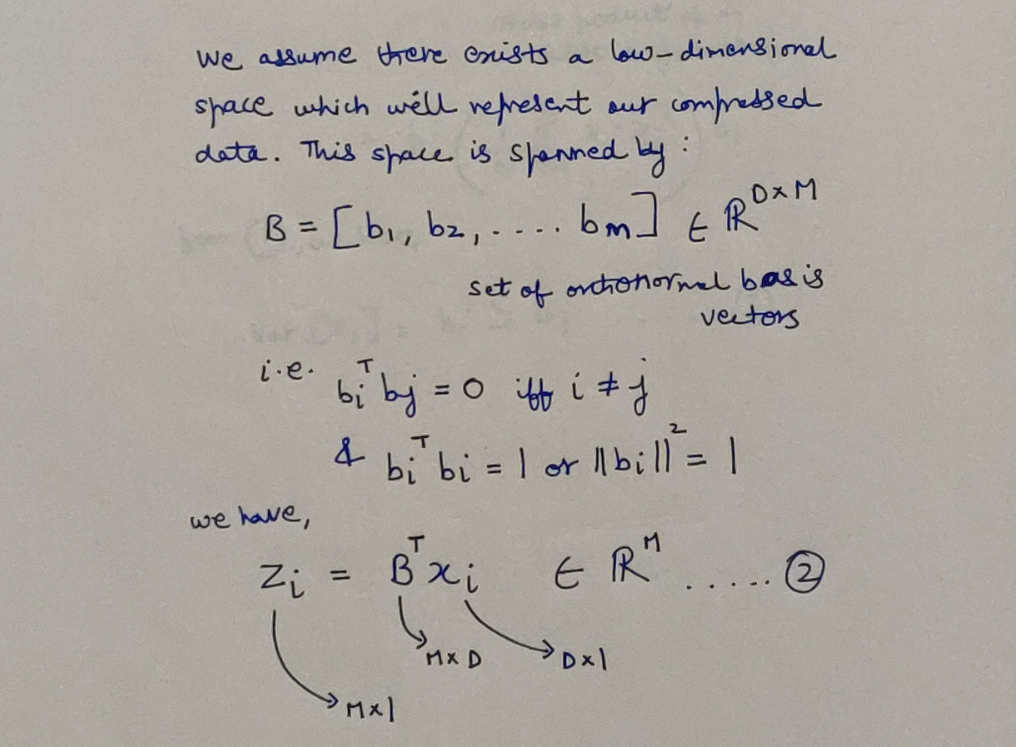 We assume there exists a low-dimensional
space which will represent our compressed
data. This space is spanned by:
B = [b₁, b₂, .... bₘ] ∈ ℝᴰˣᴹ
set of orthonormal basis
vectors
i.e. bᵢᵀbⱼ = 0 iff i ≠ j
& bᵢᵀbᵢ = 1 or ||bᵢ||² = 1
we have,
zᵢ = Bᵀxᵢ ∈ ℝᴹ ..... ②
M×D D×1
M×1